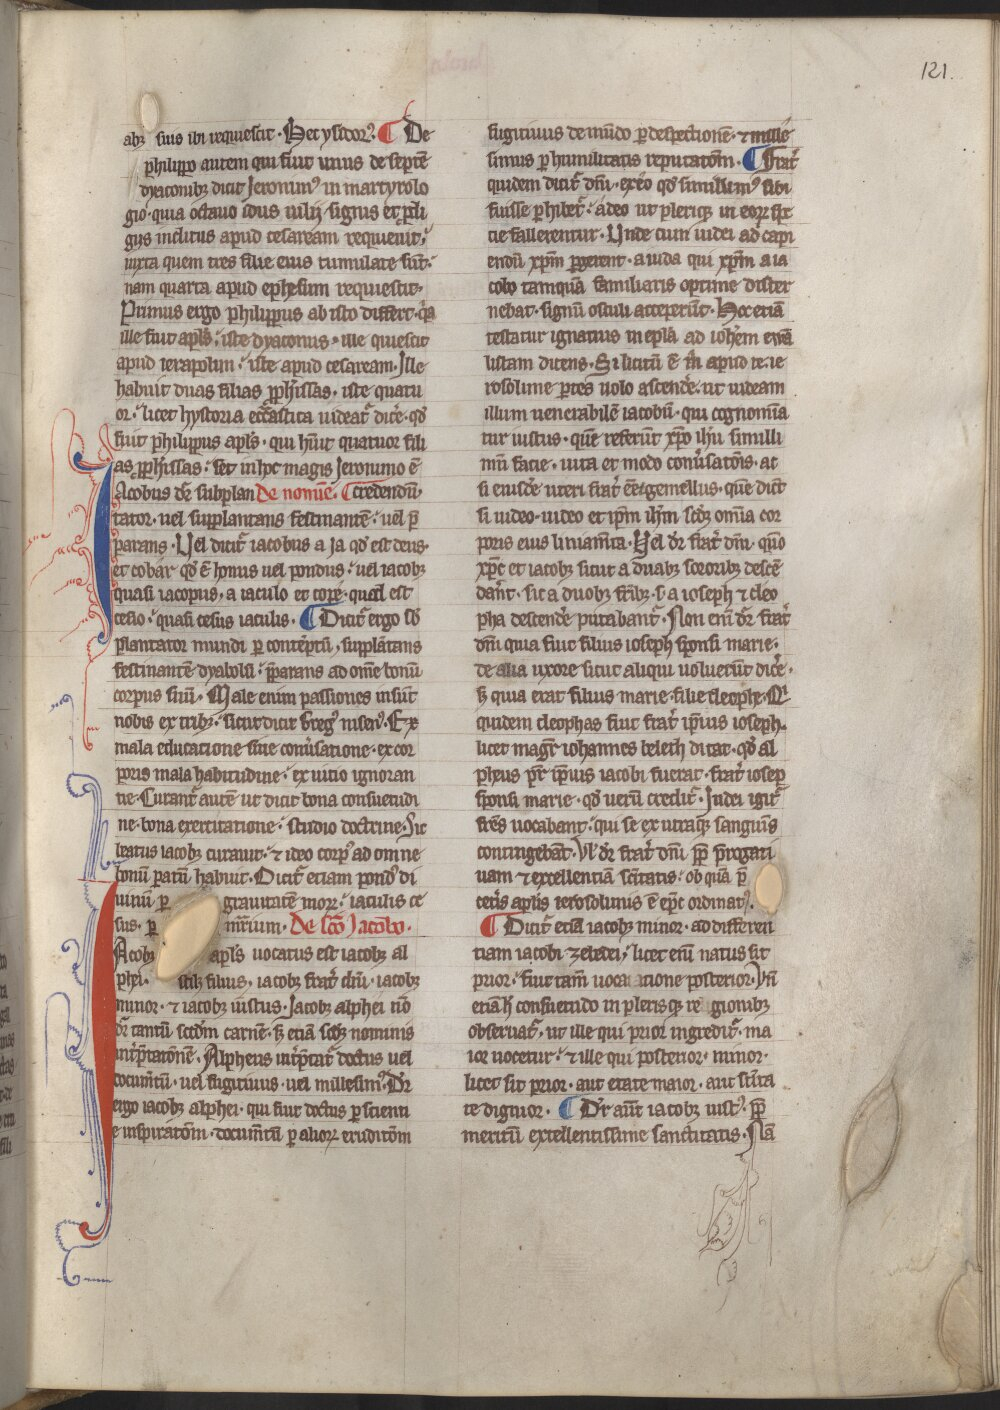 121.
abꝫ suis ibi requiescit · Hec ysidorꝰ. ¶ De
philippo autem qui fuit unus de septē
dyaconibꝫ dicit Jeronimꝰ in martyrolo
gio · quia octauo idus iulij signis et ꝓdi
gijs inclitus apud cesaream requieuit ·
iuxta quem tres filie eius tumulate sūt ·
nam quarta apud ephesum requiescit ·
Primus ergo philippus ab isto differt · q̄a
ille fuit apl̄s · iste dyaconus · ille quiescit
apud ierapolim · iste apud cesaream · Ille
habuit duas filias ꝓph̄issas · iste quatu
or · licet hystoria eccl̄astica uideat᷑ dic̄e · qđ
fuit philippus apl̄s · qui h̄uit quatuor fili
as ꝓph̄issas · set in hoc magis Jeronimo ē
Jacobus dr̄ subplan De nomīe. ¶ credendū ·
tator · uel supplantans festinantē · uel p̄
parans · Vel dicit᷑ iacobus a ja qđ est deus ·
et cobar qđ ē honus uel pondus · uel iacobꝫ
quasi iacopus, a iaculo et cope · quasi est
cesio · quasi cesus iaculis · ¶ Dicit᷑ ergo sb̄
plantator mundi ꝑ contēptū, supplātans
festinantē dyabolū · p̄parans ad om̄e bonū
corpus suū · Male enim passiones insūt
nobis ex tribꝫ · sicut dicit Greg᷑ nisenꝰ · Ex
mala educatione siue conūsatione · ex cor
poris mala habitudine · ex uitio ignoran
tie · Curant᷑ autē ut dicit bona consuetudi
ne · bona exercitatione · studio doctrine · Sic
beatus iacobꝫ curauit · ⁊ ideo corpꝰ ad omne
bonū paratū habuit · Dicit᷑ etiam pondꝰ di
uinū ꝑ grauitatē morꝝ · iaculis ce
sus · ꝑ mr̄rium · De sc̄o Jacobo ·
Jacobꝫ apl̄s uocatus est iacobꝫ al
phei · filius, iacobꝫ frat᷑ dn̄i · iacobꝫ
minor · ⁊ iacobꝫ iustus · Jacobꝫ alphei nō
dr̄ tantū sc̄dm carnē · ꝫ etiā scdꝫ nominis
int̄p̄tatōnē · Alpheus int̄p̄tat᷑ doctus uel
documtū · uel fugitiuus · uel millesimꝰ · Dr̄
ergo iacobꝫ alphei · qui fuit doctus ꝑ scienti
e inspiratōm · documtū ꝑ alioꝝ eruditōm
fugitiuus de mūdo ꝑ despectionē · ⁊ mille
simus ꝑ humilitatis reputatōm · ¶ Frat᷑
quidem dicit᷑ dn̄i · ex eo qđ simillimꝰ sibi
fuisse ꝑhibet᷑ · adeo ut pleriqꝫ in eoꝝ spe
cie fallerentur · Unde cum iudei ad capi
endū xp̄m ꝑgerent · a iuda qui xp̄m a ia
cobo tamquā familiaris optime discer
nebat · signū osculi acceperūt · Hoc etiā
testatur ignatius in ep̄la ad ioh̄em ewā
listam dicens · Si licitū ē m̄ apud te · ie
rosolime ꝑtes uolo ascende · ut uideam
illum uenerabilē iacobū · qui cognomīa
tur iustus · quē referūt xp̄o ih̄u simili
mū facie · uita et modo conūsatōis · ac
si eiusdē uteri frat᷑ ēet gemellus · quē dict̄
si uideo · uideo et ip̄m ih̄m scdꝫ omīa cor
poris eius liniamīta · Vel dr̄ frat᷑ dn̄i · quō
xp̄c et iacobꝫ sicut a duabꝫ sororibꝫ descē
dar̄t · sic a duobꝫ fr̄ibꝫ · s · a ioseph ⁊ cleo
pha descendē putabant᷑ · Non enī dr̄ frat᷑
dn̄i quia fuit filius ioseph sponsi marie ·
de alia uxore sicut aliqui uoluerūt dicē ·
ꝫ quia erat filius marie · filie cleophe · Q̄
quidem cleophas fuit frat᷑ ip̄ius ioseph ·
licet mag᷑r iohannes belech dicat · qđ al
pheus pr̄ ip̄ius iacobi fuerat · frat᷑ iosep
sponsi marie · qđ uerū credit᷑ · Judei igit᷑
fr̄es uocabant · qui se ex utraqꝫ sanguīs
contingebāt · Vl̄ dr̄ frat᷑ dn̄i ꝓp̄ p̄rogati
uam ⁊ excellentiā sc̄itatis · ob quā p̄
cet̄is apl̄is ierosolimis ē ep̄c ordinatꝰ ·
¶ Dicit᷑ etiā iacobꝫ minor · ad differen
tiam iacobi zebedei · licet enī natus sit
prior · fuit tam̄ uocatione posterior · Vn̄
etiā h̄ consuetudo in plerisqꝫ religionibꝫ
obseruat᷑ · ut ille qui prior ingredit᷑ · ma
ior uocetur · ⁊ ille qui posterior · minor ·
licet sit prior · aut etate maior · aut sc̄ita
te dignior · ¶ Dr̄ aūt iacobꝫ iustꝰ · ꝓp̄
meritū excellentissime sanctitatis · Nā